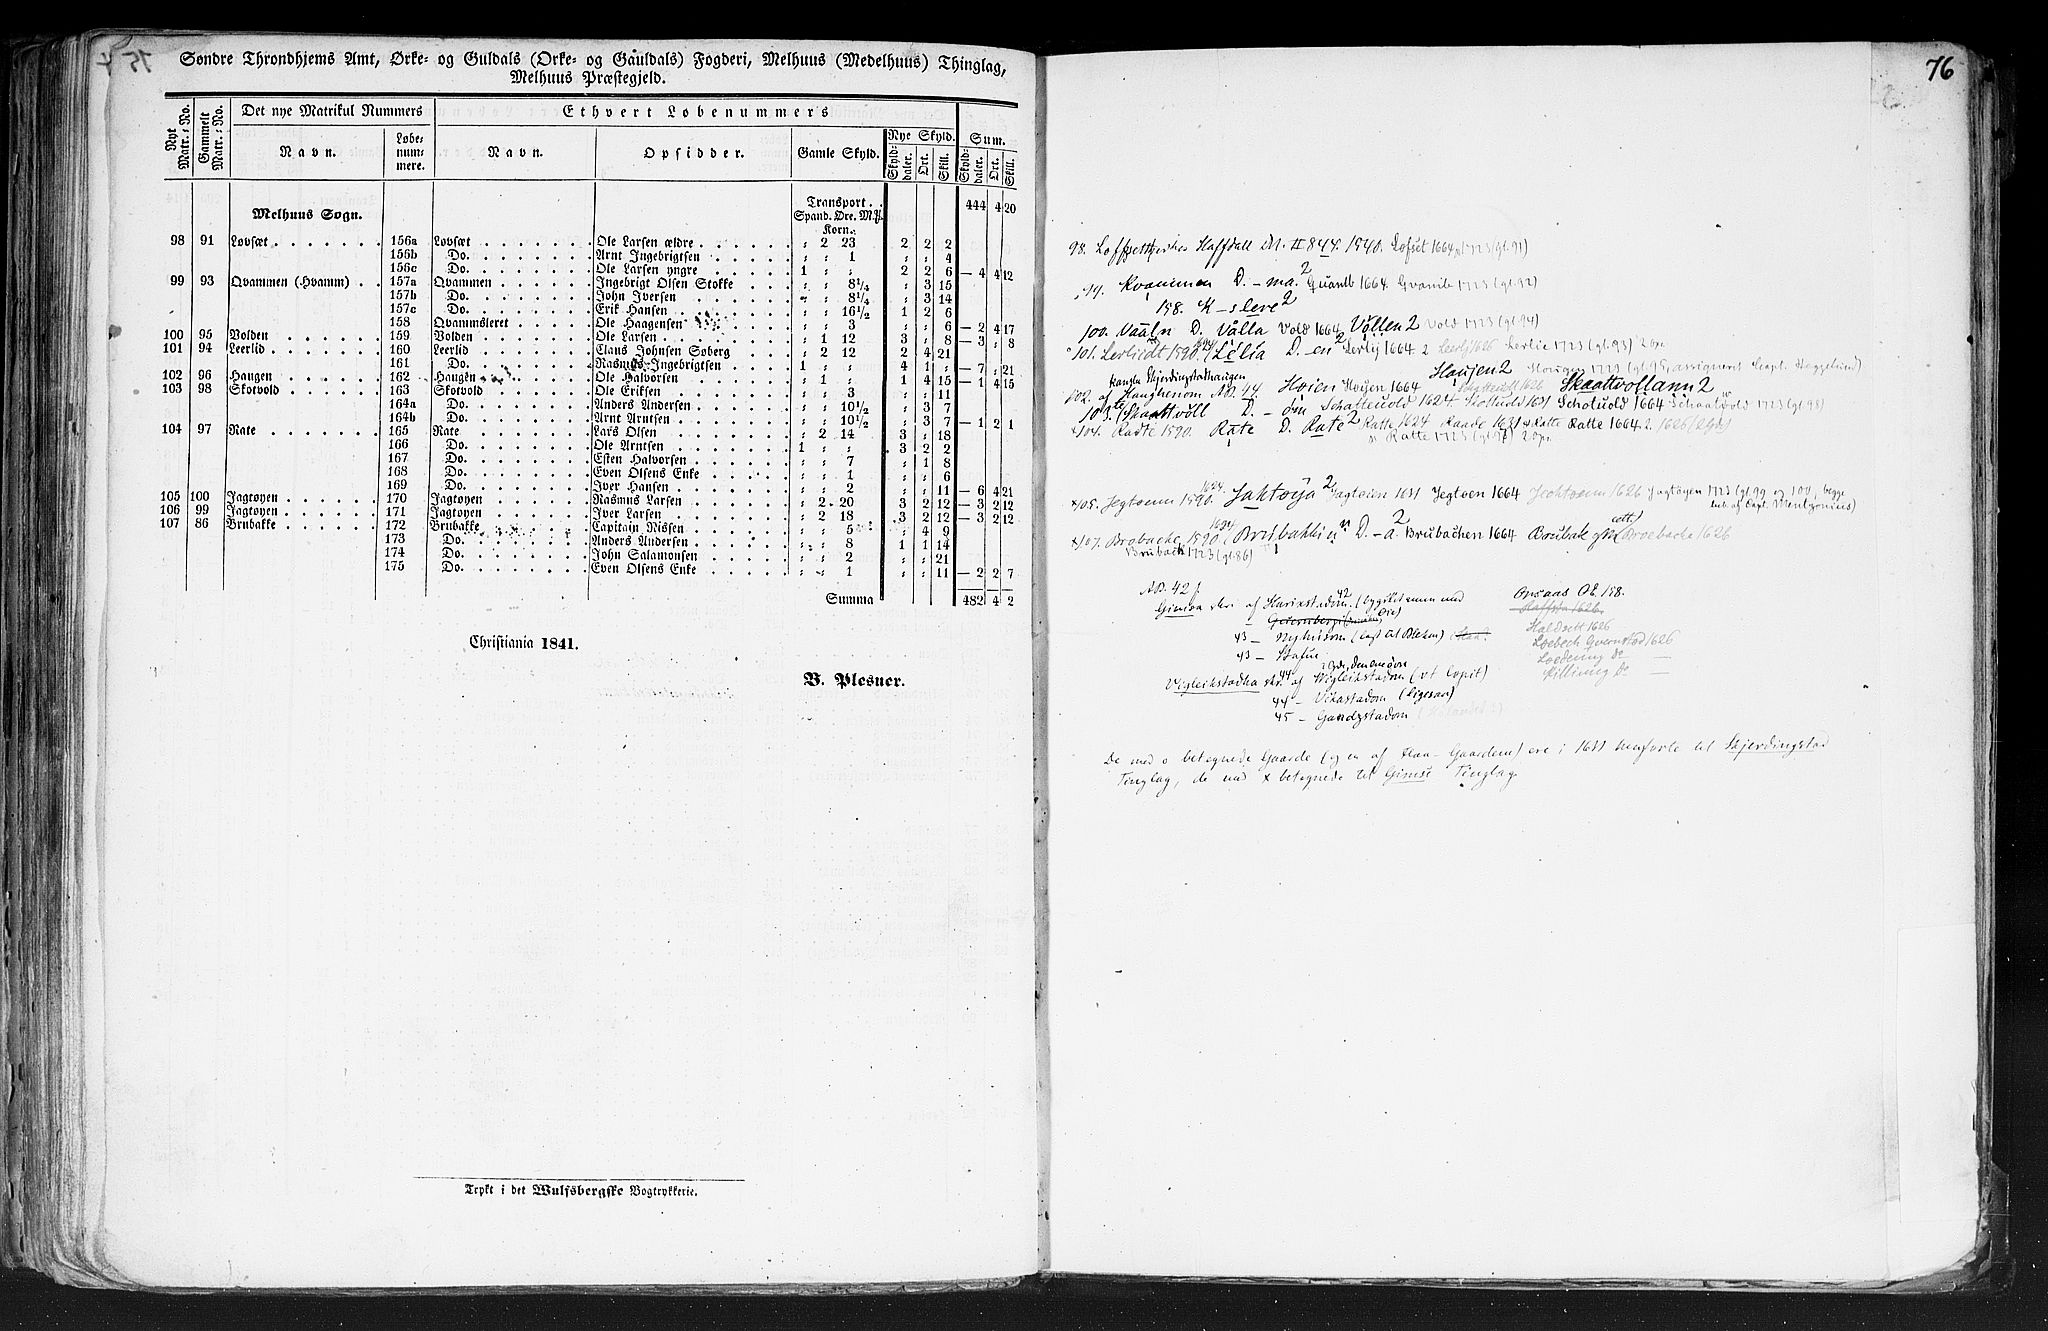 Søndre Throndhjems Amt, Ørke- og Guldals (Orke- og Gauldals) Fogderi, Melhuus (Medelhuus) Thinglag,
Melhuus Præstegjeld.
Nye Matr.-No. Gammelt Matr.-No. Det nye Matrikul Nummers Ethvert Løbenummers
Navn. Løbe-nummere. Navn. Opsidder. Gamle Skyld. Nye Skyld. Sum.
Skylddaler. Ort. Skill. Skylddaler. Ort. Skill.
Transport. 444 4 20
Melhuus Sogn. Spand. Øre. M.P. Korn.
98 91 Løvsæt 156a Løvsæt Ole Larsen ældre „ 2 23 2 2 2
156b Do. Arnt Ingebrigtsen „ „ 1 „ „ 4
156c Do. Ole Larsen yngre 1 „ „ 2 2 6 — 4 4 12
99 93 Qvammen (Hvamm) 157a Qvammen Ingebrigt Olsen Stokke „ „ 8 1/4 „ 3 15
157b Do. John Iversen „ „ 8 1/4 „ 3 14
157c Do. Erik Hansen „ „ 16 1/2 1 2 6
158 Qvammsleret Ole Haagensen „ „ 3 „ „ 6 — 2 4 17
100 95 Volden 159 Volden Ole Larsen „ 1 12 3 „ 8 — 3 „ 8
101 94 Leerlid 160 Leerlid Claus Johnsen Søberg „ 2 12 2 4 21
161 Do. Rasmus Ingebrigtsen 1 „ „ 4 1 „ — 7 „ 21
102 96 Haugen 162 Haugen Ole Halvorsen „ 1 „ 1 4 15 — 1 4 15
103 98 Skotvold 163 Skotvold Ole Eriksen „ „ 3 „ „ 11
164a Do. Anders Andersen „ „ 10 1/2 „ 3 7
164b Do. Arnt Arntsen „ „ 10 1/2 „ 3 7 — 1 2 1
104 97 Rate 165 Rate Lars Olsen „ 2 14 3 „ 18
166 Do. Ole Arntsen 1 „ „ 3 2 2
167 Do. Esten Halvorsen „ „ 7 „ 1 8
168 Do. Even Olsens Enke „ „ 1 „ „ 6
169 Do. Iver Hansen „ „ 2 „ „ 11 — 6 4 21
105 100 Jagtøyen 170 Jagtøyen Rasmus Larsen „ 2 20 3 2 12 — 3 2 12
106 99 Jagtøyen 171 Jagtøyen Iver Larsen „ 2 18 3 2 12 — 3 2 12
107 86 Brubakke 172 Brubakke Capitain Nissen „ „ 5 „ 4 9
173 Do. Anders Andersen „ „ 8 1 1 14
174 Do. John Salamonsen „ „ 2 „ „ 21
175 Do. Even Olsens Enke „ „ 1 „ „ 11 — 2 2 7
Summa 482 4 2
Christiania 1841.
V. Plesner.
Trykt i det Wulfsbergske Bogtrykkerie.
76
98. DN. II 847. 1540. Lofset 1664 1723 (gl. 91)
99. Kvammen D. - ma. 2 Quamb 1664. Qvamb 1723 (gl. 92)
158. K-slere 2
100. Vaaln D. Vålla Vold 1664 Vøllen 2 Vold 1723 (gl. 94)
101. Lerliidt 1590. Lélia D. - en 2 Lerlij 1664 2 Leerlj 1626 Lerlie 1723 (gl. 93) 2 Opr.
kangla Skjerdingstadhaugen Haujen 2
102. af Haughenom AB. 44. Høien Høyen 1664
Skaattvollann 2
103. Skaattvöll D. - òm Schatteuold 1624. Skottuold 1631 Schotuold 1664 1723 (gl. 98)
104. Radte 1590. Rate D. Rate 2 Ratte 1624 Raade 1631 Ratte 1664. 2. 1626
Ratte 1723 (gl. 97) 2 Opr.
1624
105. Jegtoenn 1590. Jahtøija 2 Jagtøien 1631 Jegtøen 1664 1626 Jagtøyen 1723 (gl. 99 og 100, begge
1624
107. Brobacke 1590. D. - a. 2 Brubachen 1664 Brubak Broebacke 1626
Bruback 1723 (gl. 86)
AB. 42
Gimsa skr. af
43 — Nyhusom
43 —
Vigleikstadha skr. 44 af Vigleikstadom
44 — Vikastadom
45 —
Onsaas OE 158.
Haffsta 1626.
Haldsett 1626
Loebech Gvernstad 1626
De med o betegnede Gaarde (og en af Flaa-Gaardene) ere i 1631 henførte til Skjerdingstad
Tinglag, de med x betegnede til Gimse Tinglag